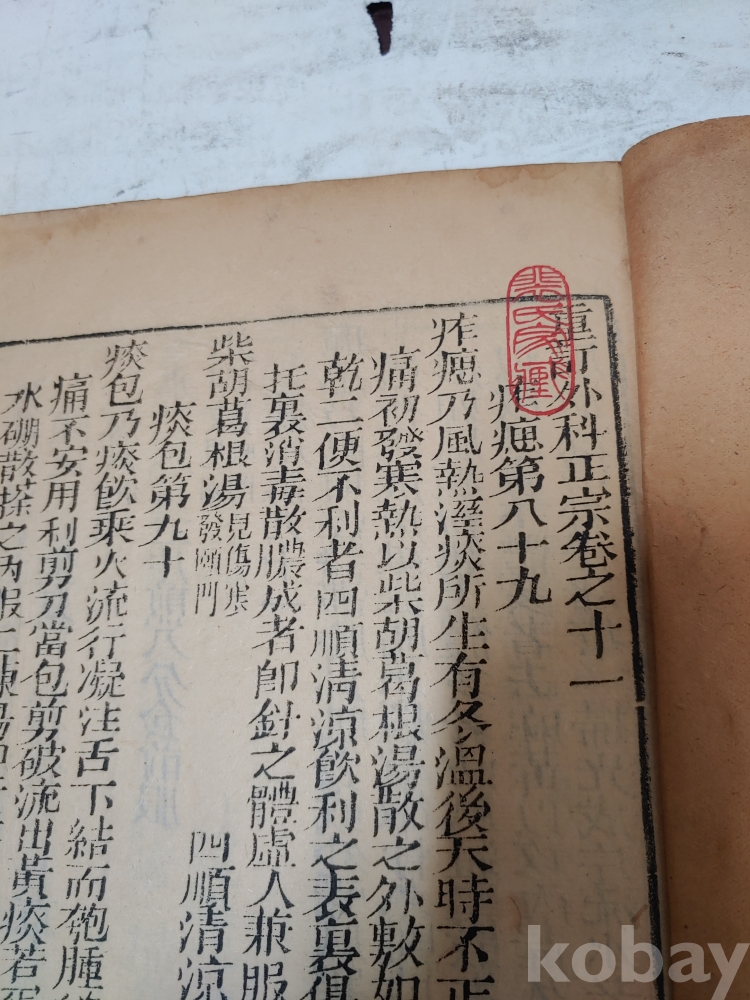 重訂外科正宗卷之十一
痄腮第八十九
痄腮乃風熱溼痰所生有冬溫後天時不正
痛初發寒熱以柴胡葛根湯散之外敷如
乾二便不利者四順清涼飲利之表裏俱
托裏消毒散膿成者即針之體虛人兼服
柴胡葛根湯 見傷寒發頤門 四順清涼
痰包第九十
痰包乃痰飲乘火流行凝注舌下結而匏腫
痛不安用利剪刀當包剪破流出黃痰若蛋
氷硼散搽之內服二陳湯
裴氏家藏
kobay